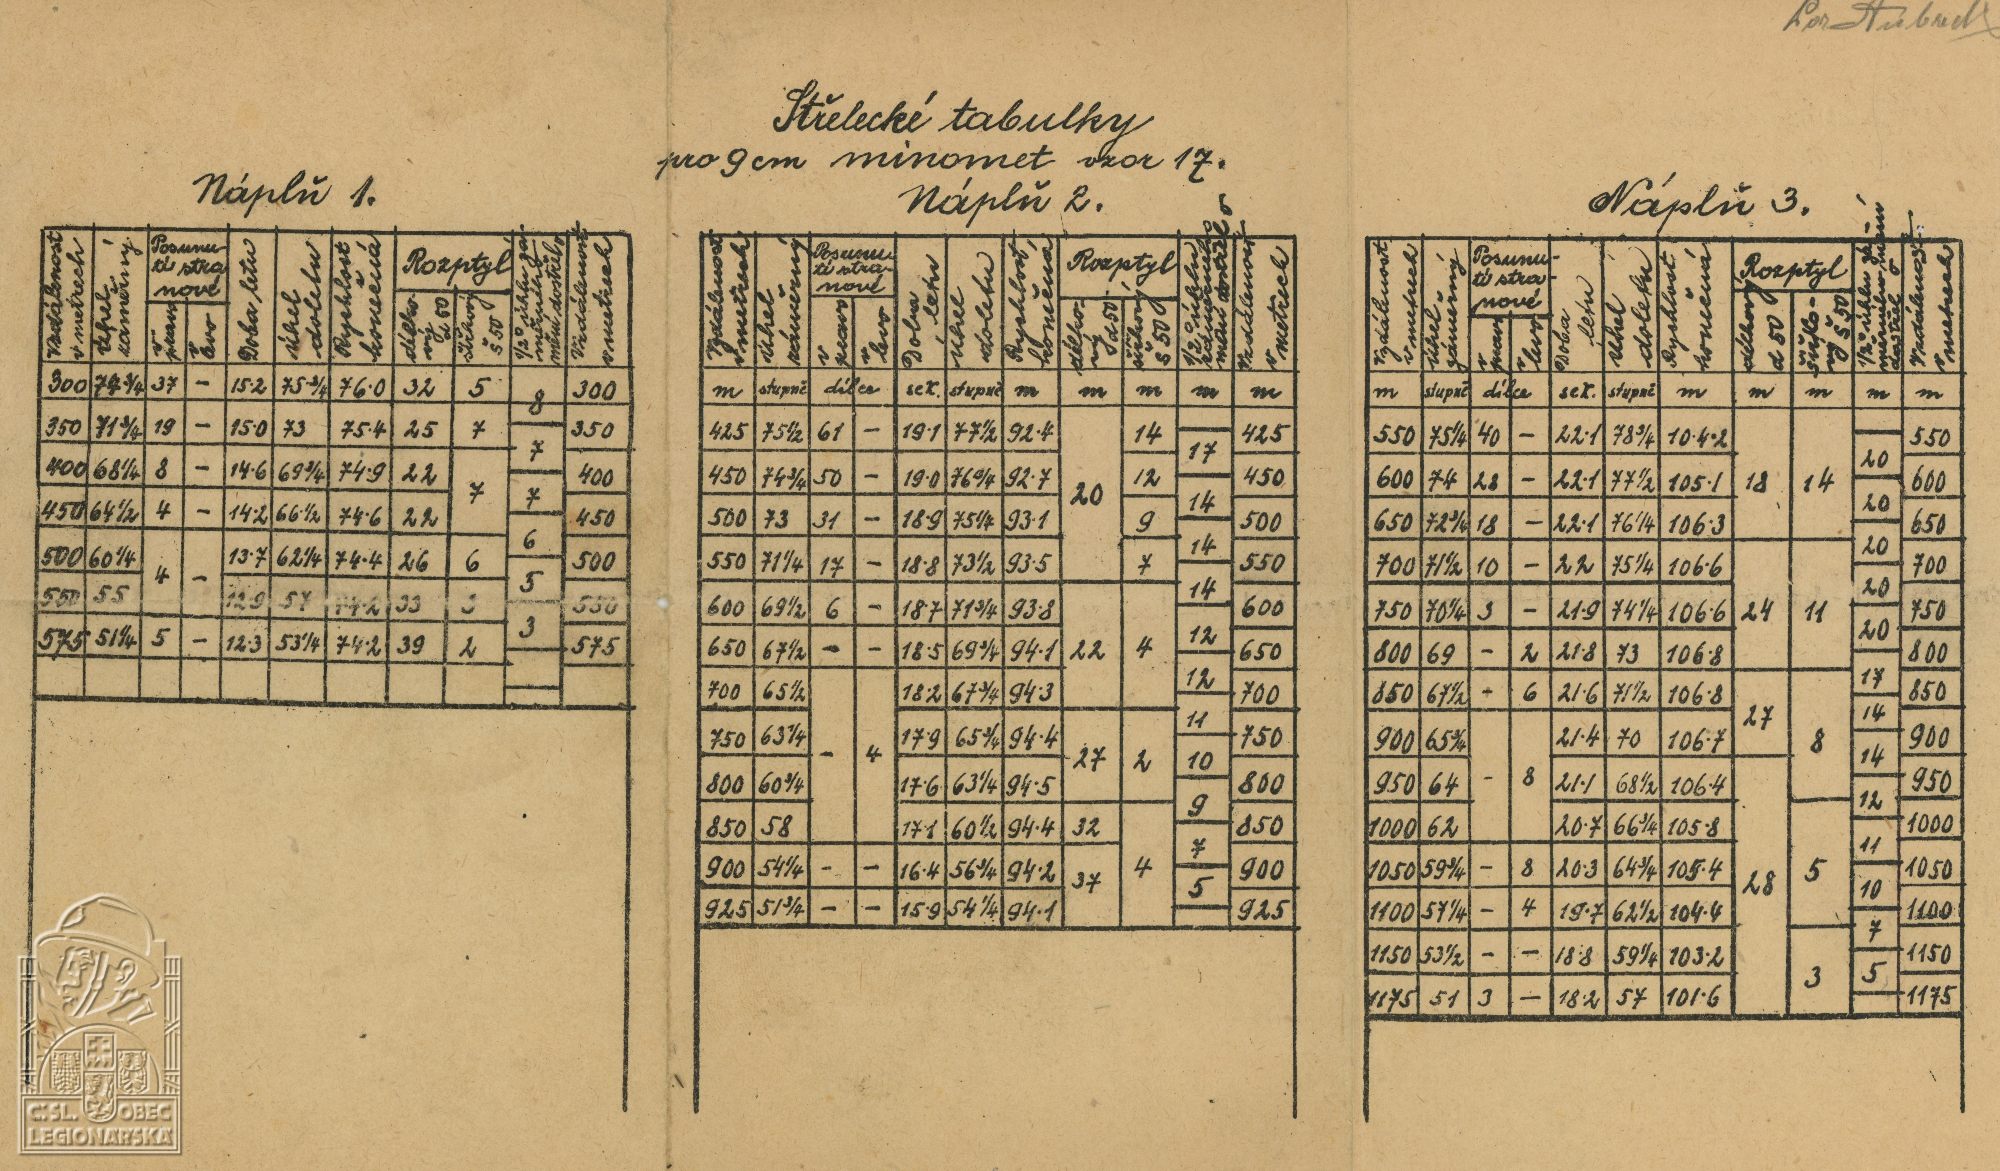 Střelecké tabulky
pro 9 cm minomet vzor 17.
Náplň 1.
Vzdálenost v metrech | Úhel zámerný | Posunutí stranové v pravo | v levo | Doba letu | Úhel doletu | Rychlost konečná | Rozptyl délkový d 50 | šířkový š 50 | Vzdálenost v metrech
300 | 74 3/4 | 37 | – | 15·2 | 75 3/4 | 76·0 | 32 | 5 | 8 | 300
350 | 71 3/4 | 19 | – | 15·0 | 73 | 75·4 | 25 | 7 | 7 | 350
400 | 68 1/4 | 8 | – | 14·6 | 69 3/4 | 74·9 | 22 | 7 | 7 | 400
450 | 64 1/2 | 4 | – | 14·2 | 66 1/2 | 74·6 | 22 | 6 | 450
500 | 60 1/4 | 4 | – | 13·7 | 62 1/4 | 74·4 | 26 | 6 | 5 | 500
550 | 55 | 12·9 | 57 | 74·2 | 33 | 3 | 3 | 550
575 | 51 1/4 | 5 | – | 12·3 | 53 1/4 | 74·2 | 39 | 2 | 575
Náplň 2.
Vzdálenost v metrech | Úhel záměrný | Posunutí stranové v pravo | v levo | Doba letu | Úhel doletu | Rychlost konečná | Rozptyl délkový d 50 | šířkový š 50 | Vzdálenost v metrech
m | stupně | dílce | sek. | stupně | m | m | m | m | m
425 | 75 1/2 | 61 | – | 19·1 | 77 1/2 | 92·4 | 14 | 17 | 425
450 | 74 3/4 | 50 | – | 19·0 | 76 3/4 | 92·7 | 20 | 12 | 14 | 450
500 | 73 | 31 | – | 18·9 | 75 1/4 | 93·1 | 9 | 14 | 500
550 | 71 1/4 | 17 | – | 18·8 | 73 1/2 | 93·5 | 7 | 14 | 550
600 | 69 1/2 | 6 | – | 18·7 | 71 3/4 | 93·8 | 12 | 600
650 | 67 1/2 | – | – | 18·5 | 69 3/4 | 94·1 | 22 | 4 | 12 | 650
700 | 65 1/2 | 18·2 | 67 3/4 | 94·3 | 11 | 700
750 | 63 1/4 | – | 4 | 17·9 | 65 3/4 | 94·4 | 27 | 2 | 10 | 750
800 | 60 3/4 | 17·6 | 63 1/4 | 94·5 | 9 | 800
850 | 58 | 17·1 | 60 1/2 | 94·4 | 32 | 7 | 850
900 | 54 1/4 | – | – | 16·4 | 56 3/4 | 94·2 | 37 | 4 | 5 | 900
925 | 51 3/4 | – | – | 15·9 | 54 1/4 | 94·1 | 925
Náplň 3.
Vzdálenost v metrech | Úhel záměrný | Posunutí stranové v pravo | v levo | Doba letu | Úhel doletu | Rychlost konečná | Rozptyl délkový d 50 | šířkový š 50 | Vzdálenost v metrech
m | stupně | dílce | sek. | stupně | m | m | m | m | m
550 | 75 1/4 | 40 | – | 22·1 | 78 3/4 | 104·2 | 20 | 550
600 | 74 | 28 | – | 22·1 | 77 1/2 | 105·1 | 18 | 14 | 20 | 600
650 | 72 3/4 | 18 | – | 22·1 | 76 1/4 | 106·3 | 20 | 650
700 | 71 1/2 | 10 | – | 22 | 75 1/4 | 106·6 | 20 | 700
750 | 70 1/4 | 3 | – | 21·9 | 74 1/4 | 106·6 | 24 | 11 | 20 | 750
800 | 69 | – | 2 | 21·8 | 73 | 106·8 | 17 | 800
850 | 67 1/2 | – | 6 | 21·6 | 71 1/2 | 106·8 | 27 | 14 | 850
900 | 65 3/4 | 21·4 | 70 | 106·7 | 8 | 14 | 900
950 | 64 | – | 8 | 21·1 | 68 1/2 | 106·4 | 12 | 950
1000 | 62 | 20·7 | 66 3/4 | 105·8 | 11 | 1000
1050 | 59 3/4 | – | 8 | 20·3 | 64 3/4 | 105·4 | 28 | 5 | 10 | 1050
1100 | 57 1/4 | – | 4 | 19·7 | 62 1/2 | 104·4 | 7 | 1100
1150 | 53 1/2 | – | – | 18·8 | 59 1/4 | 103·2 | 3 | 5 | 1150
1175 | 51 | 3 | – | 18·2 | 57 | 101·6 | 1175
Č.SL. OBEC
LEGIONÁŘSKÁ